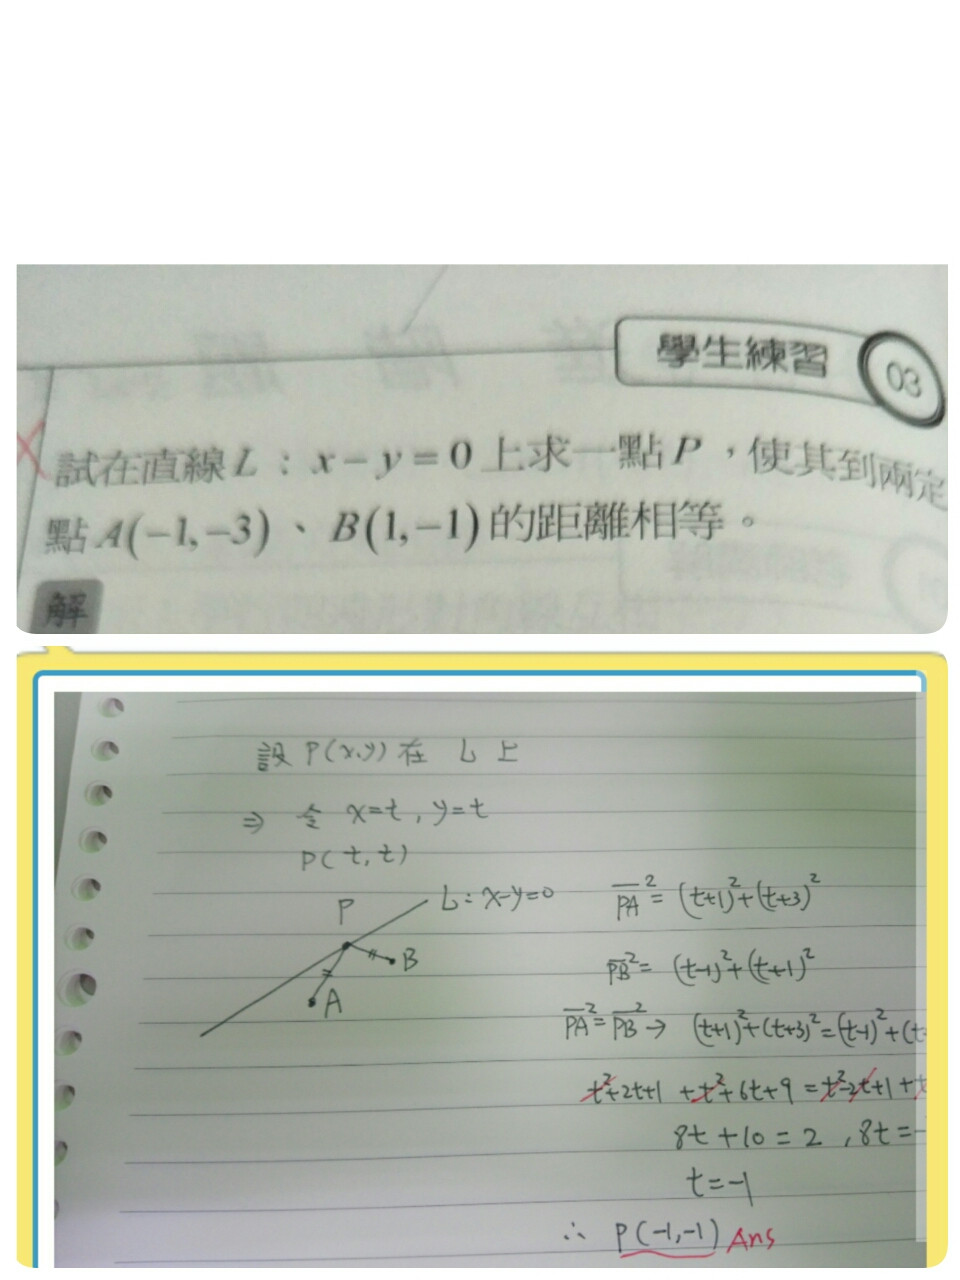 學生練習 03
試在直線 L : x-y=0 上求一點 P ，使其到兩定
點 A(-1,-3) 、 B(1,-1) 的距離相等。
解
設 P(x,y) 在 L 上
⇒ 令 x=t , y=t
P(t, t)
P
L: x-y=0
B
A
PA² = (t+1)²+(t+3)²
PB² = (t-1)²+(t+1)²
PA² = PB² → (t+1)²+(t+3)²=(t-1)²+(t
t²+2t+1 +t²+6t+9 = t²-2t+1+t
8t+10 = 2 , 8t=-
t=-1
∴ P(-1,-1) Ans